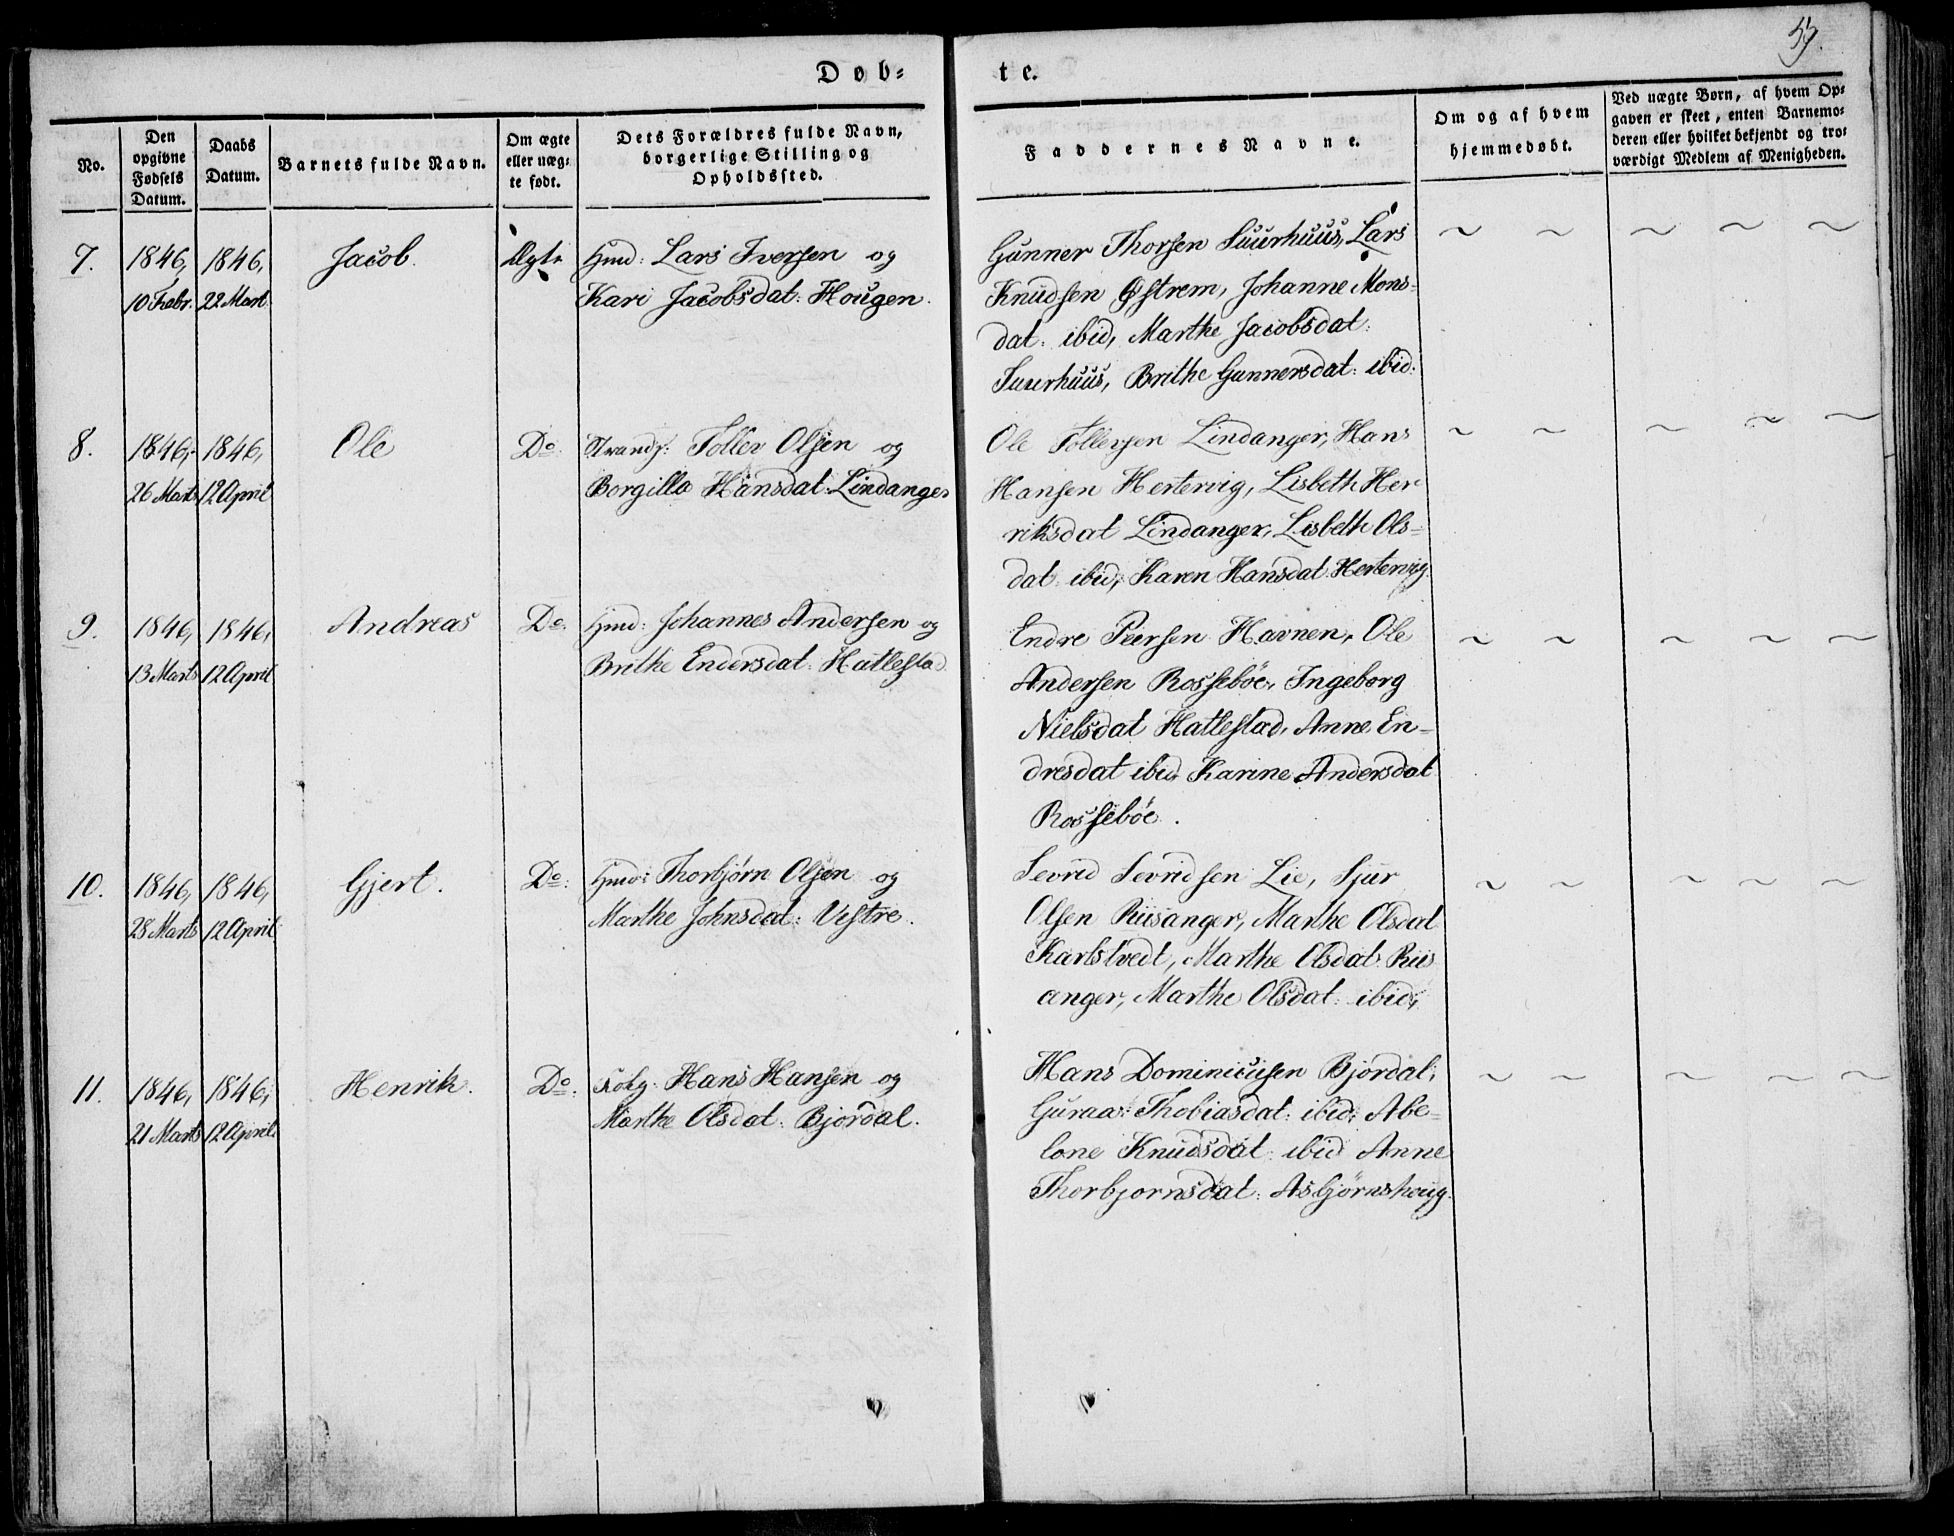 Døb-
te.
No.
Den
opgivne
Fødsels
Datum.
Daabs
Datum.
Barnets fulde Navn.
Om ægte
eller uæg-
te født.
Dets Forældres fulde Navn,
borgerlige Stilling og
Opholdssted.
Faddernes Navne.
Om og af hvem
hjemmedøbt.
Ved uægte Børn, af hvem Op-
gaven er skeet, enten Barnemo-
deren eller hvilket bekjendt og tro-
værdigt Medlem af Menigheden.
7.
1846,
10 Febr.
1846,
22 Mart
Jacob.
Ægte
Gmd: Lars Iversen og
Kari Jacobsdat: Hougen.
Gunner Thorsen Suurhuus, Lars
Knudsen Østrem, Johanne Mons-
dat: ibid, Marthe Jacobsdat:
Suurhuus, Brithe Gunnersdat: ibid:
8.
1846,
26 Marts
1846,
12 April
Ole
Do:
Strands: Toller Olsen og
Borgilla Hansdat: Lindanger
Ole Tollersen Lindanger, Hans
Hansen Hertervig, Lisbeth Hen-
riksdat Lindanger, Lisbeth Ols-
dat: ibid, Karen Hansdat Hertervig.
9.
1846,
13 Marts
1846,
12 April
Andreas
Do:
Gmd: Johannes Andersen og
Brithe Endersdat: Hatlestad
Endre Peersen Havnen, Ole
Andersen Rossebøe, Ingeborg
Nielsdat Hatlestad, Anne En-
dresdat ibid, Karine Andersdat
Rossebøe.
10.
1846,
28 Marts
1846,
12 April
Gjert.
Do:
Gmd: Thorbjørn Olsen og
Marthe Johnsdat: Vestre.
Sevrid Sevridsen Lie, Sjur
Olsen Riisanger, Marthe Olsdat
Karlstvedt, Marthe Olsdat: Riis
anger, Marthe Olsdat: ibid,
11.
1846,
21 Marts
1846,
12 April
Henrik.
Do:
Hans Hansen og
Marthe Olsdat: Bjordal.
Hans Dominicusen Bjordal,
Guraas: Thobiasdat: ibid, Abe-
lone Knudsdat: ibid Anne
Thorbjornsdat: Asbjørnshoug.